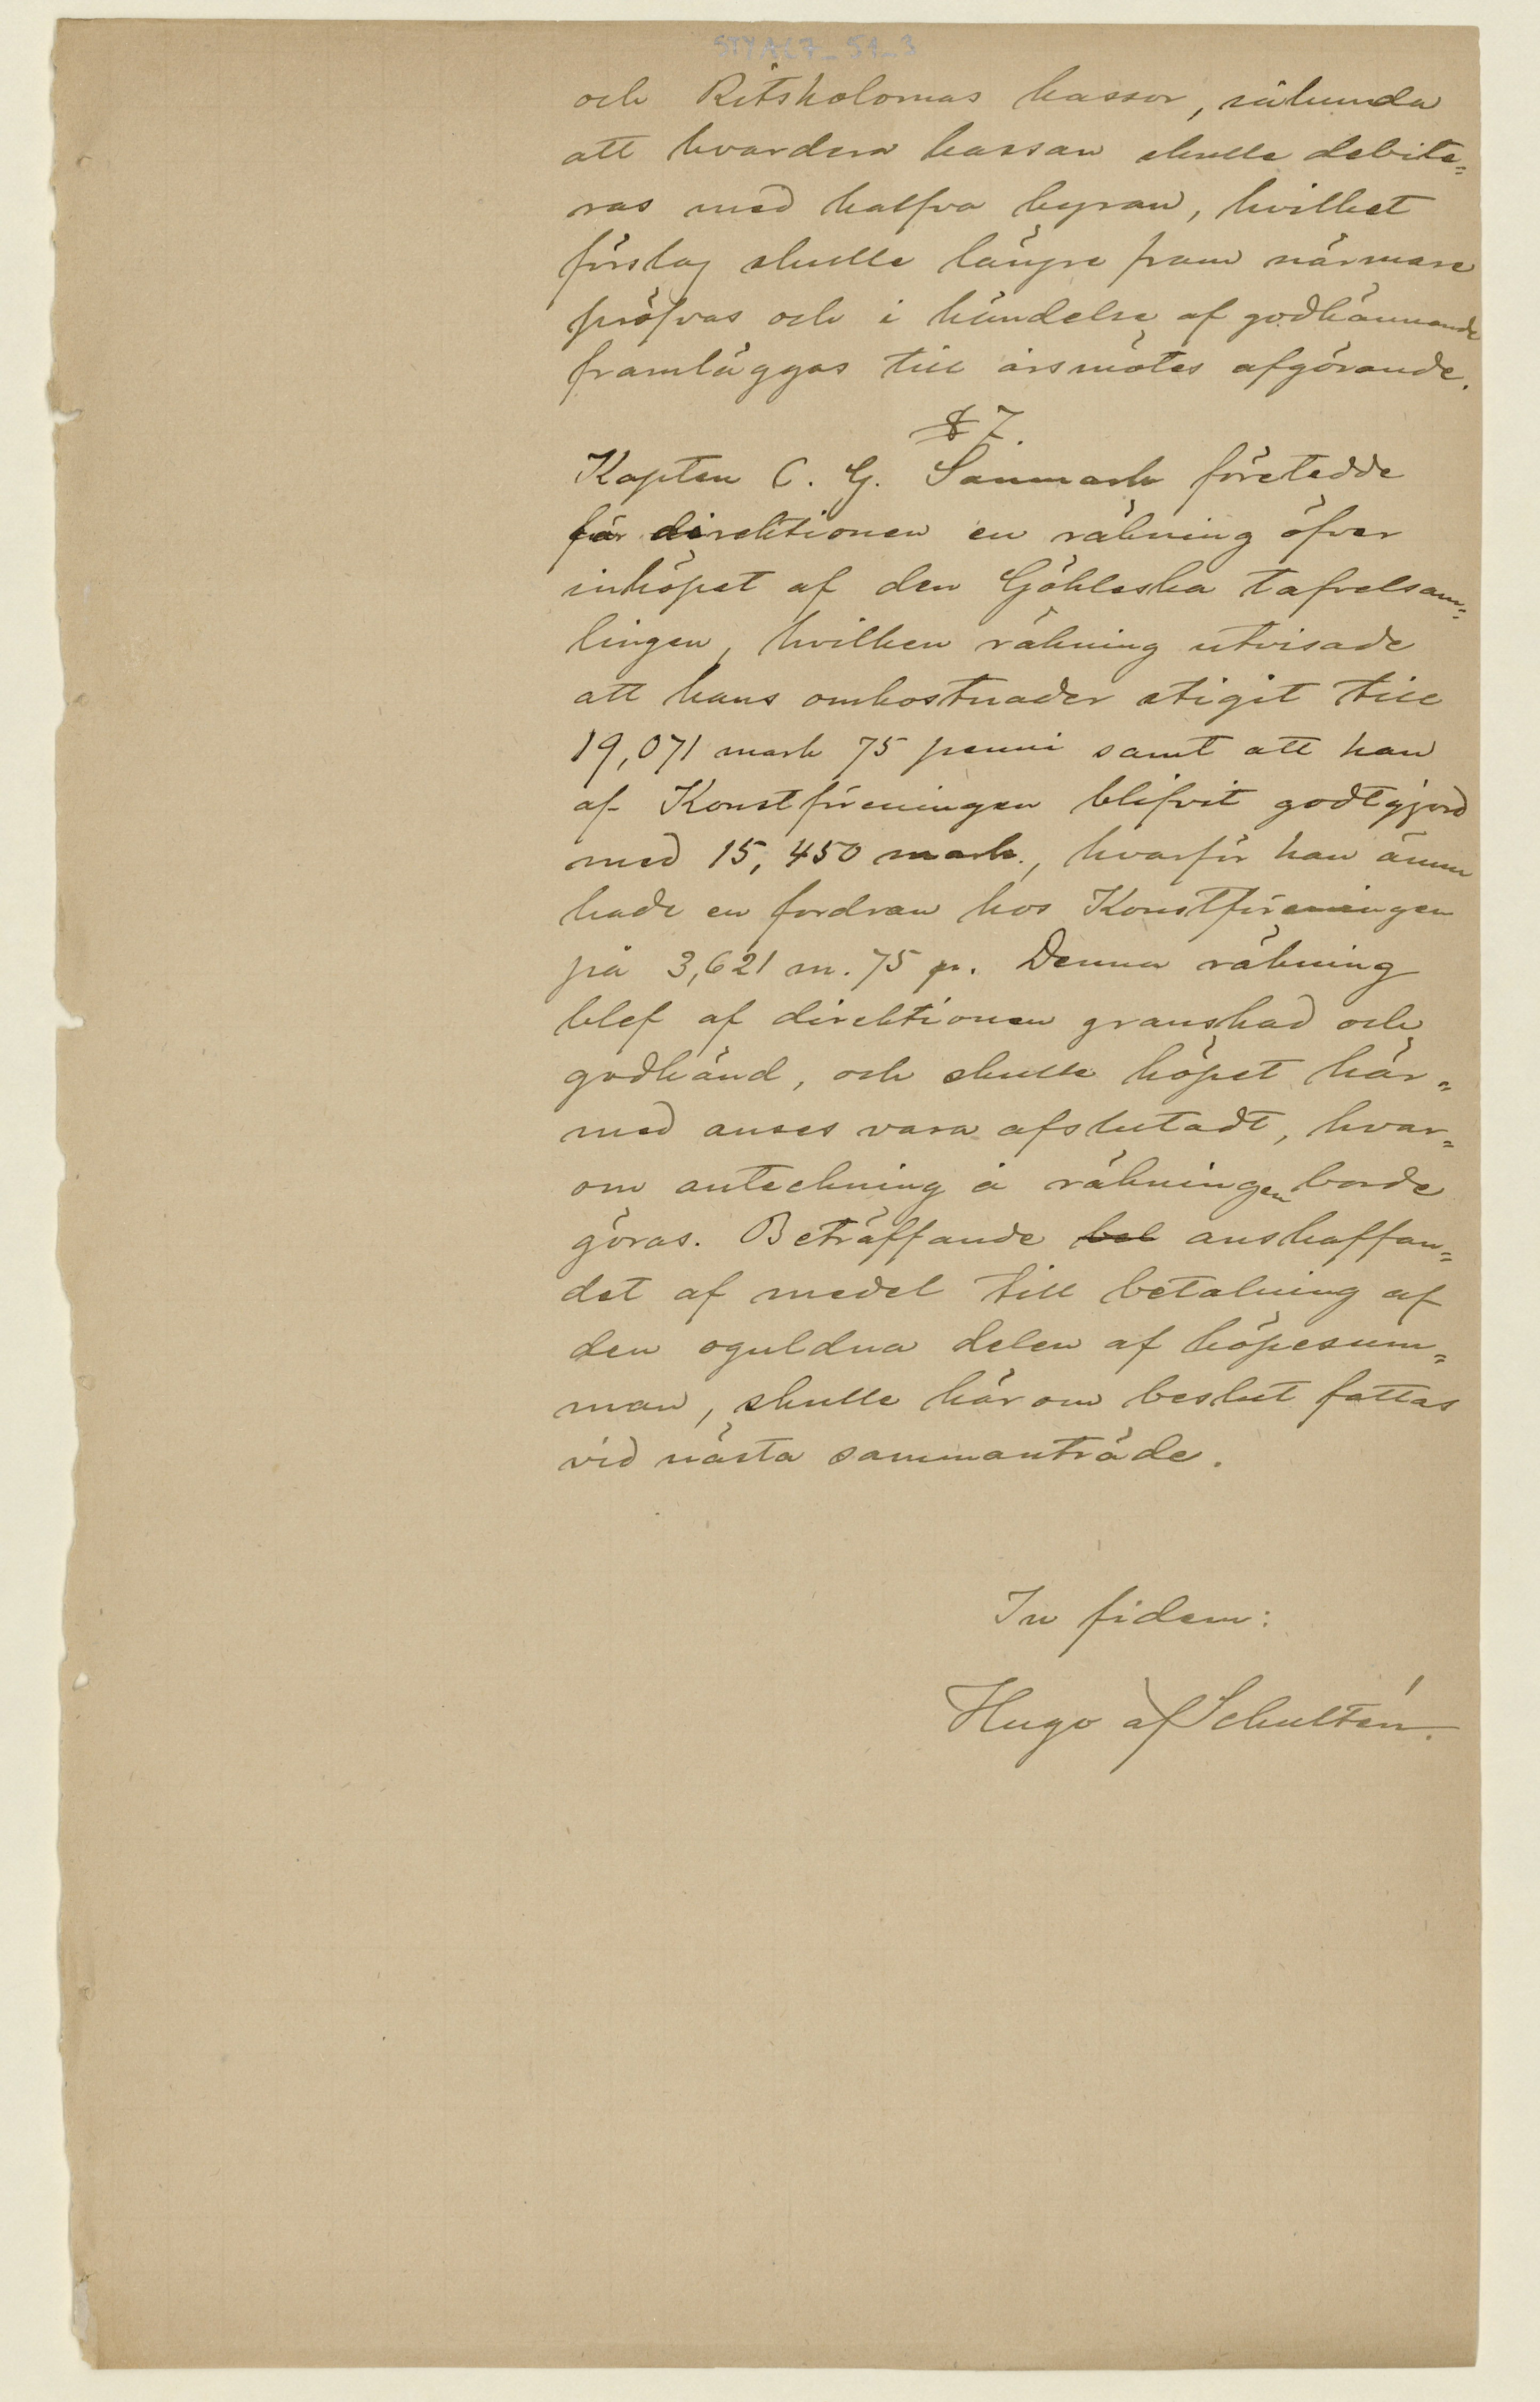 STYAC7_51_3
och Ritskolornas kassor, sålunda
att hvardera kassan skulle debite=
ras med halfva hyran, hvilket
förslag skulle längre fram närmare
pröfvas och i händelse af godkännande
framläggas till årsmötes afgörande.
§ 7.
Kapten C. G. Sanmark företedde
för direktionen en räkning öfver
inköpet af den Göhleska tafvelsam=
lingen, hvilken räkning utvisade
att hans omkostnader stigit till
19,071 mark 75 penni samt att han
af Konstföreningen blifvit godtgjord
med 15,450 mark., hvarför han ännu
hade en fordran hos Konstföreningen
på 3,621 m. 75 p. Denna räkning
blef af direktionen granskad och
godkänd, och skulle köpet här=
med anses vara afslutadt, hvar=
om anteckning å räkningen borde
göras. Beträffande bel anskaffan=
det af medel till betalning af
den oguldna delen af köpesum=
man, skulle härom beslut fattas
vid nästa sammanträde.
In fidem:
Hugo af Schultén.